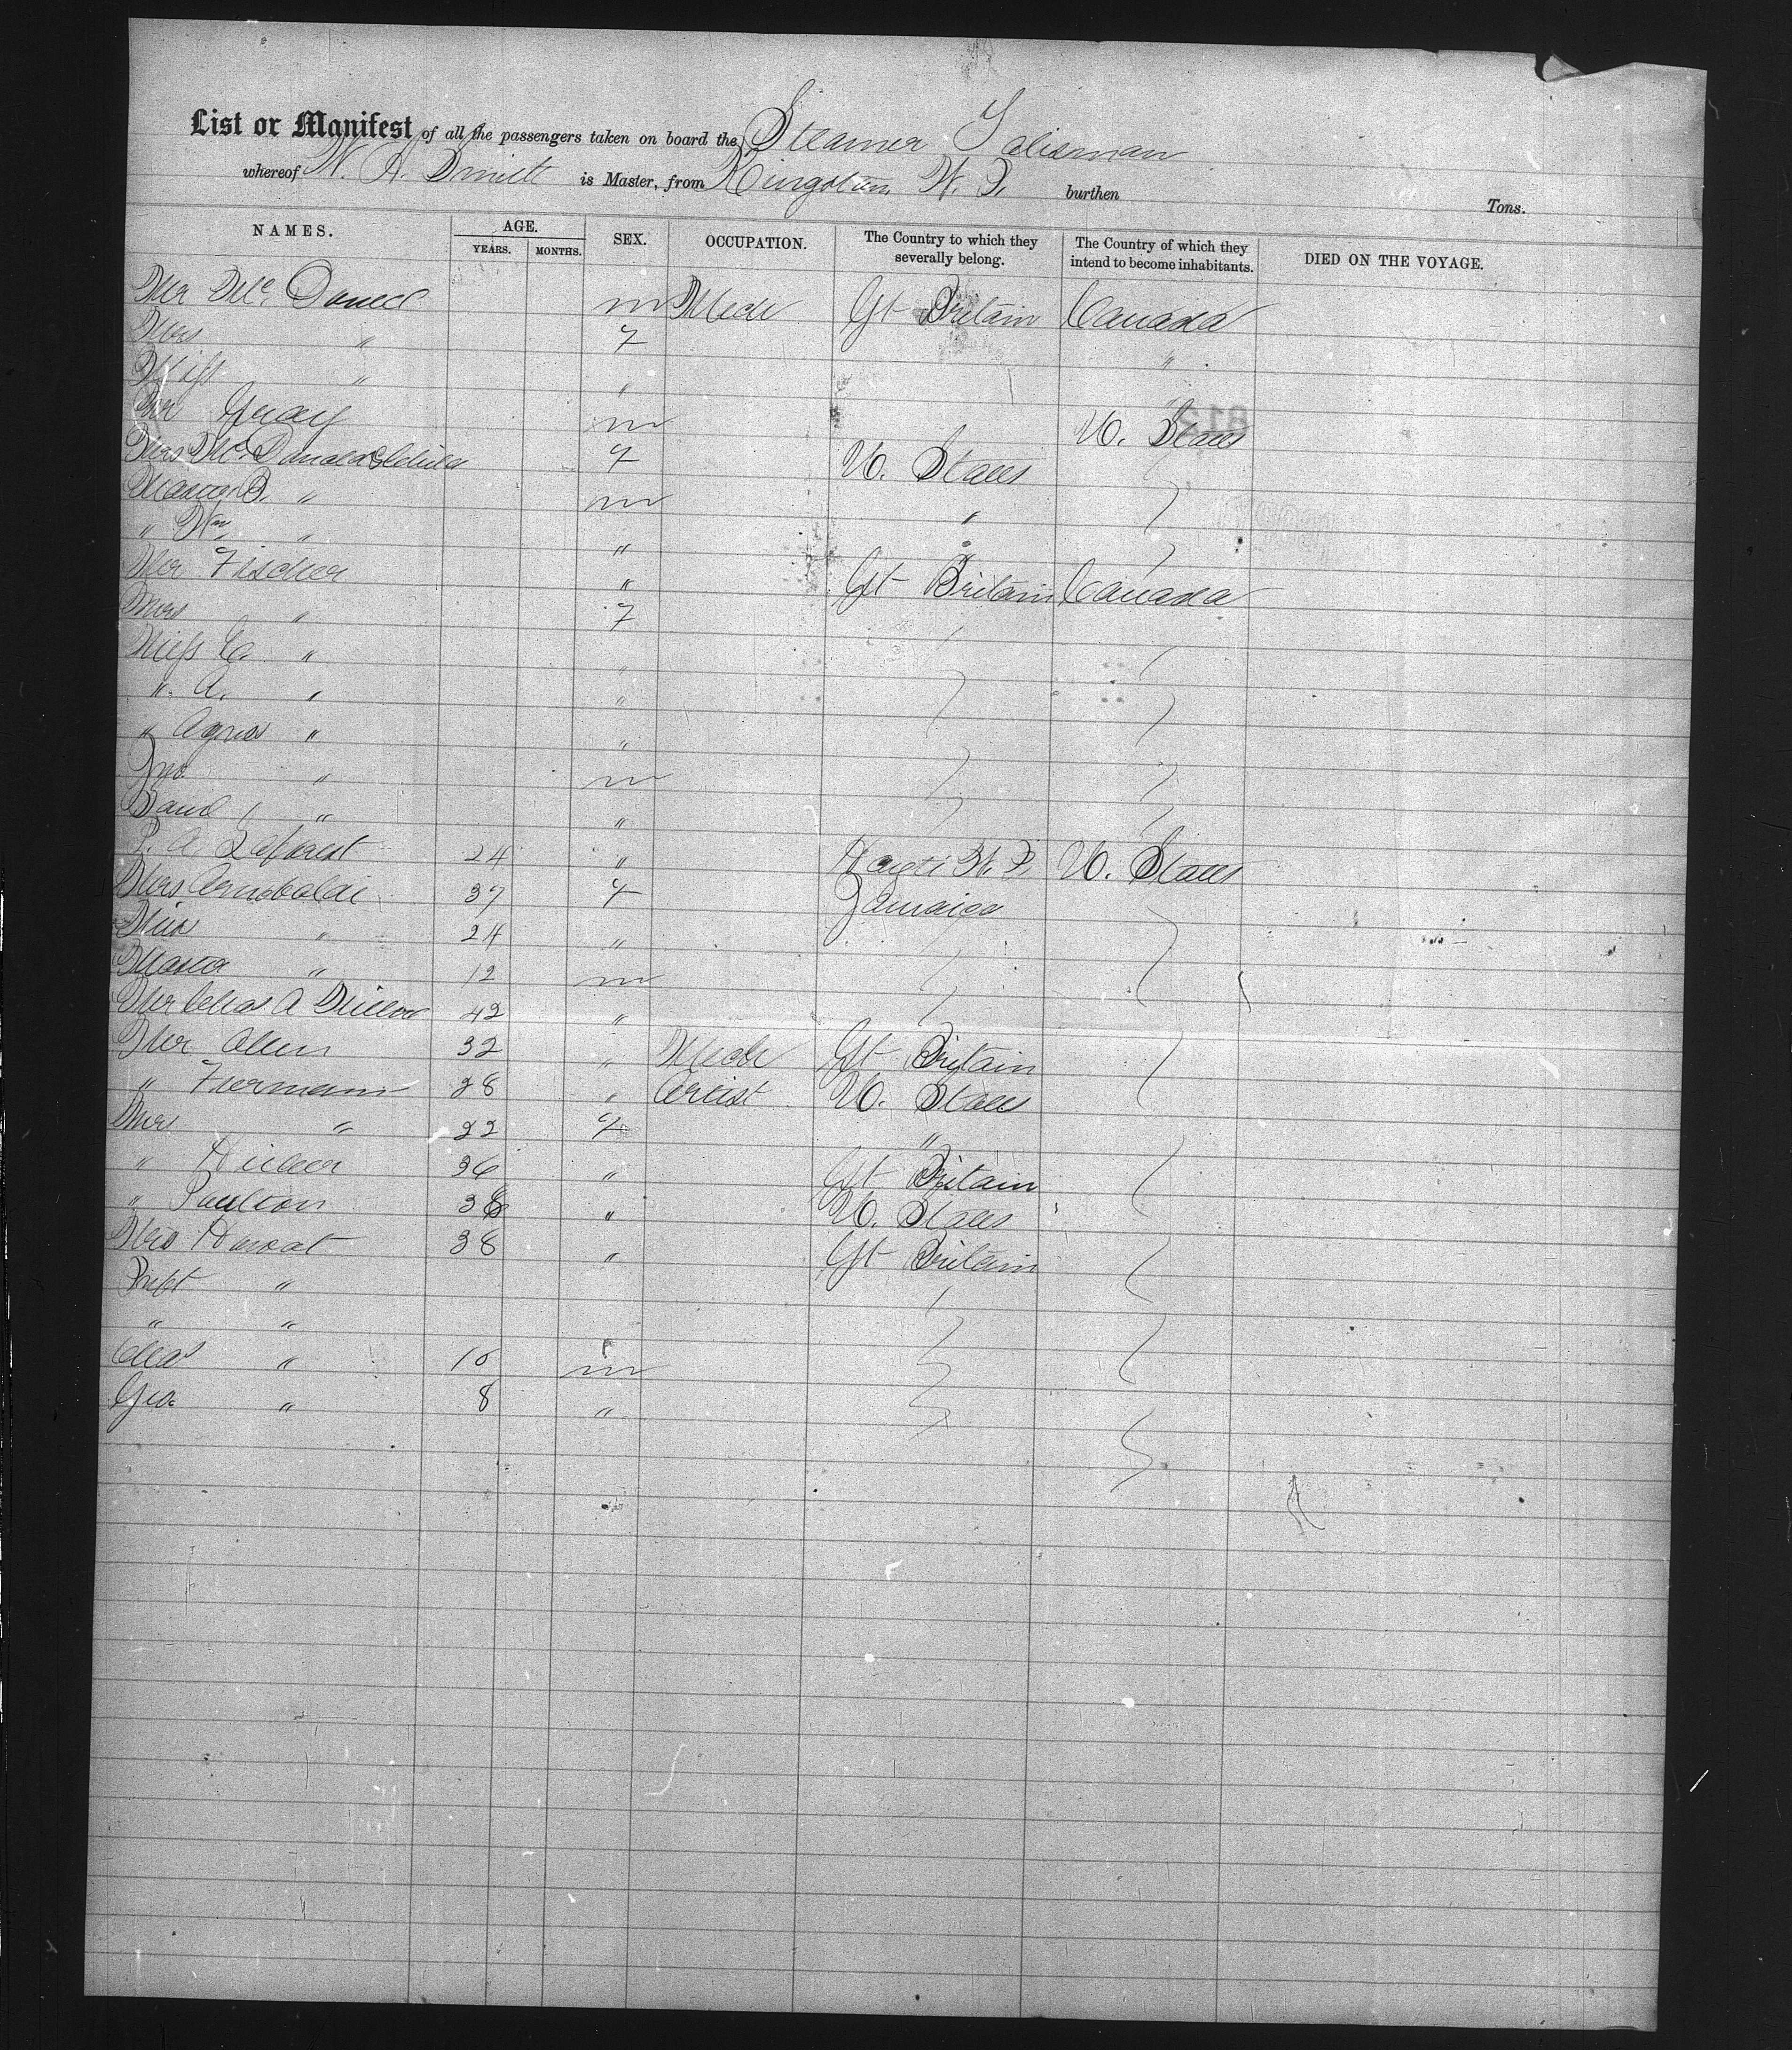 List or Manifest of all the passengers taken on board the Steamer Talisman
whereof W. A. Smith is Master, from Kingston W. I. burthen Tons.
NAMES. AGE. YEARS. MONTHS. SEX. OCCUPATION. The Country to which they severally belong. The Country of which they intend to become inhabitants. DIED ON THE VOYAGE.
Mr Mc m Mech Gt Britain Canada
Mrs " f "
Miss " "
Mr Gray m U. States
Mrs McDonald f U. States
Master B. " m "
" Wm " "
Mr Fischer " Gt Britain Canada
Mrs " f
Miss C. " "
" A. " "
" Agnes " "
Jno " m
David " "
P. A. Laforest 24 " Hayti W. I. U. States
Mrs 37 f Jamaica
Miss " 24 "
Master " 12 m
Mr Chas A 42 "
Mr Allen 32 " Mech Gt Britain
" 28 " Artist U. States
Mrs " 22 f "
" 36 " Gt Britain
" Poulton 38 " U. States
Mrs 38 " Gt Britain
"
" "
Chas " 10 m
Geo. " 8 "